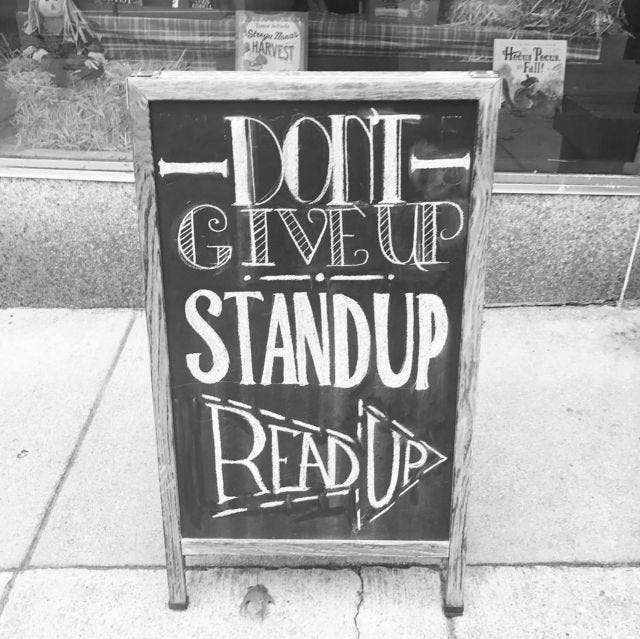 Strega Nona's
HARVEST
Hocus Pocus,
it's Fall!
DON'T
GIVE UP
STAND UP
READ UP